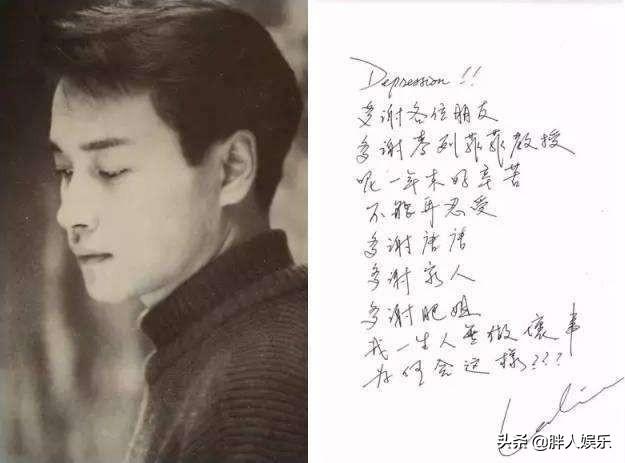 Depression!!
多谢各位朋友
多谢李列菲菲教授
呢一年来好辛苦
不能再忍受
多谢唐唐
多谢家人
多谢肥姐
我一生人无做坏事
为何会这样???
Leslie
头条 @胖人娱乐